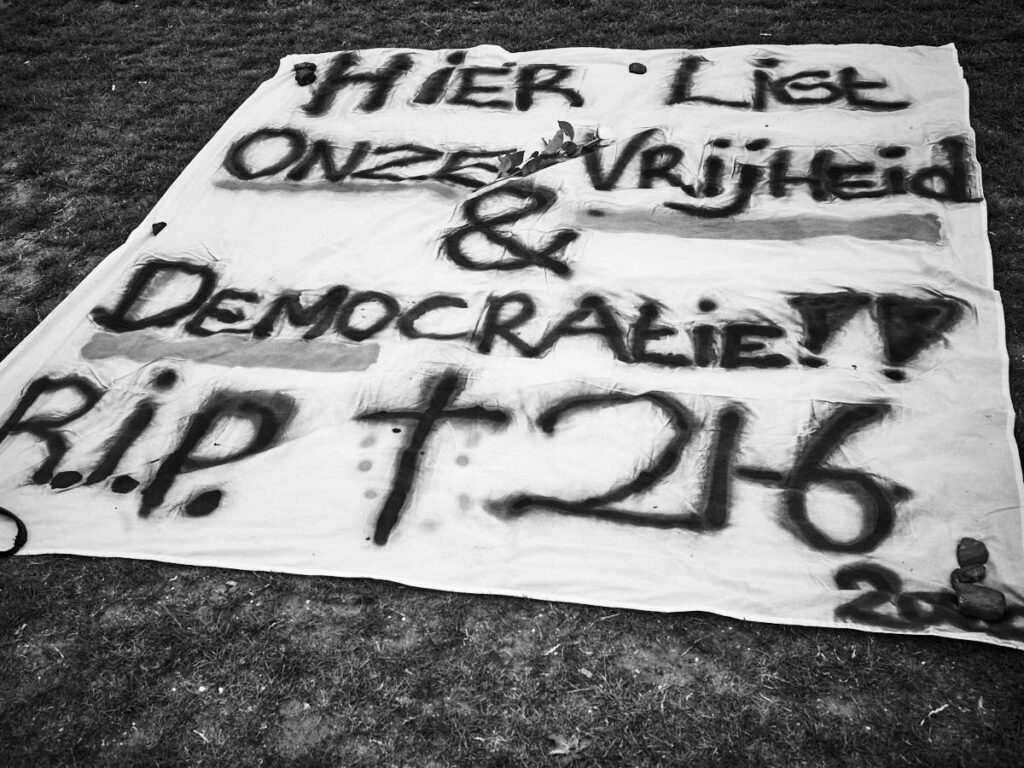 HiER LiGt
ONZE VRijHEid
&
DEMOCRAtiE!!
R.i.P. † 21-6